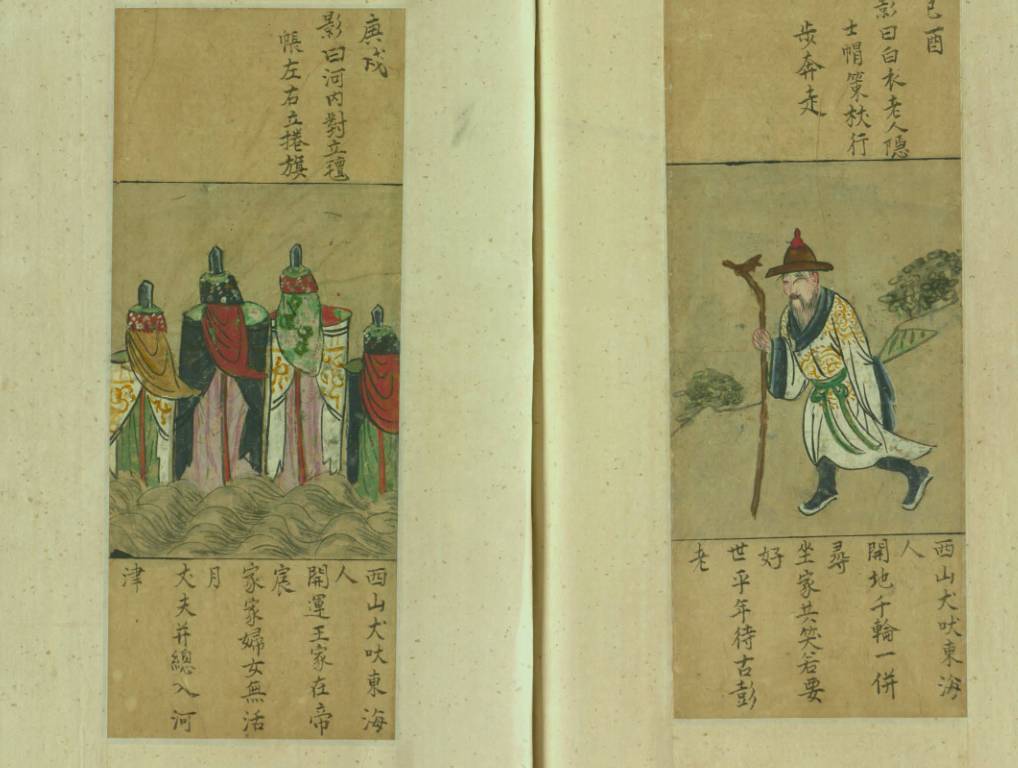 己酉
影曰白衣老人隱
士帽策杖行
步奔走
西山犬吠東海
人
開地千輪一併
尋
坐家共笑若要
好
世平年待古彭
老
庚戍
影曰河内對立氊
帳左右立捲旗
西山犬吠東海
人
開運王家在帝
宸
家家婦女無活
月
犬夫并總入河
津